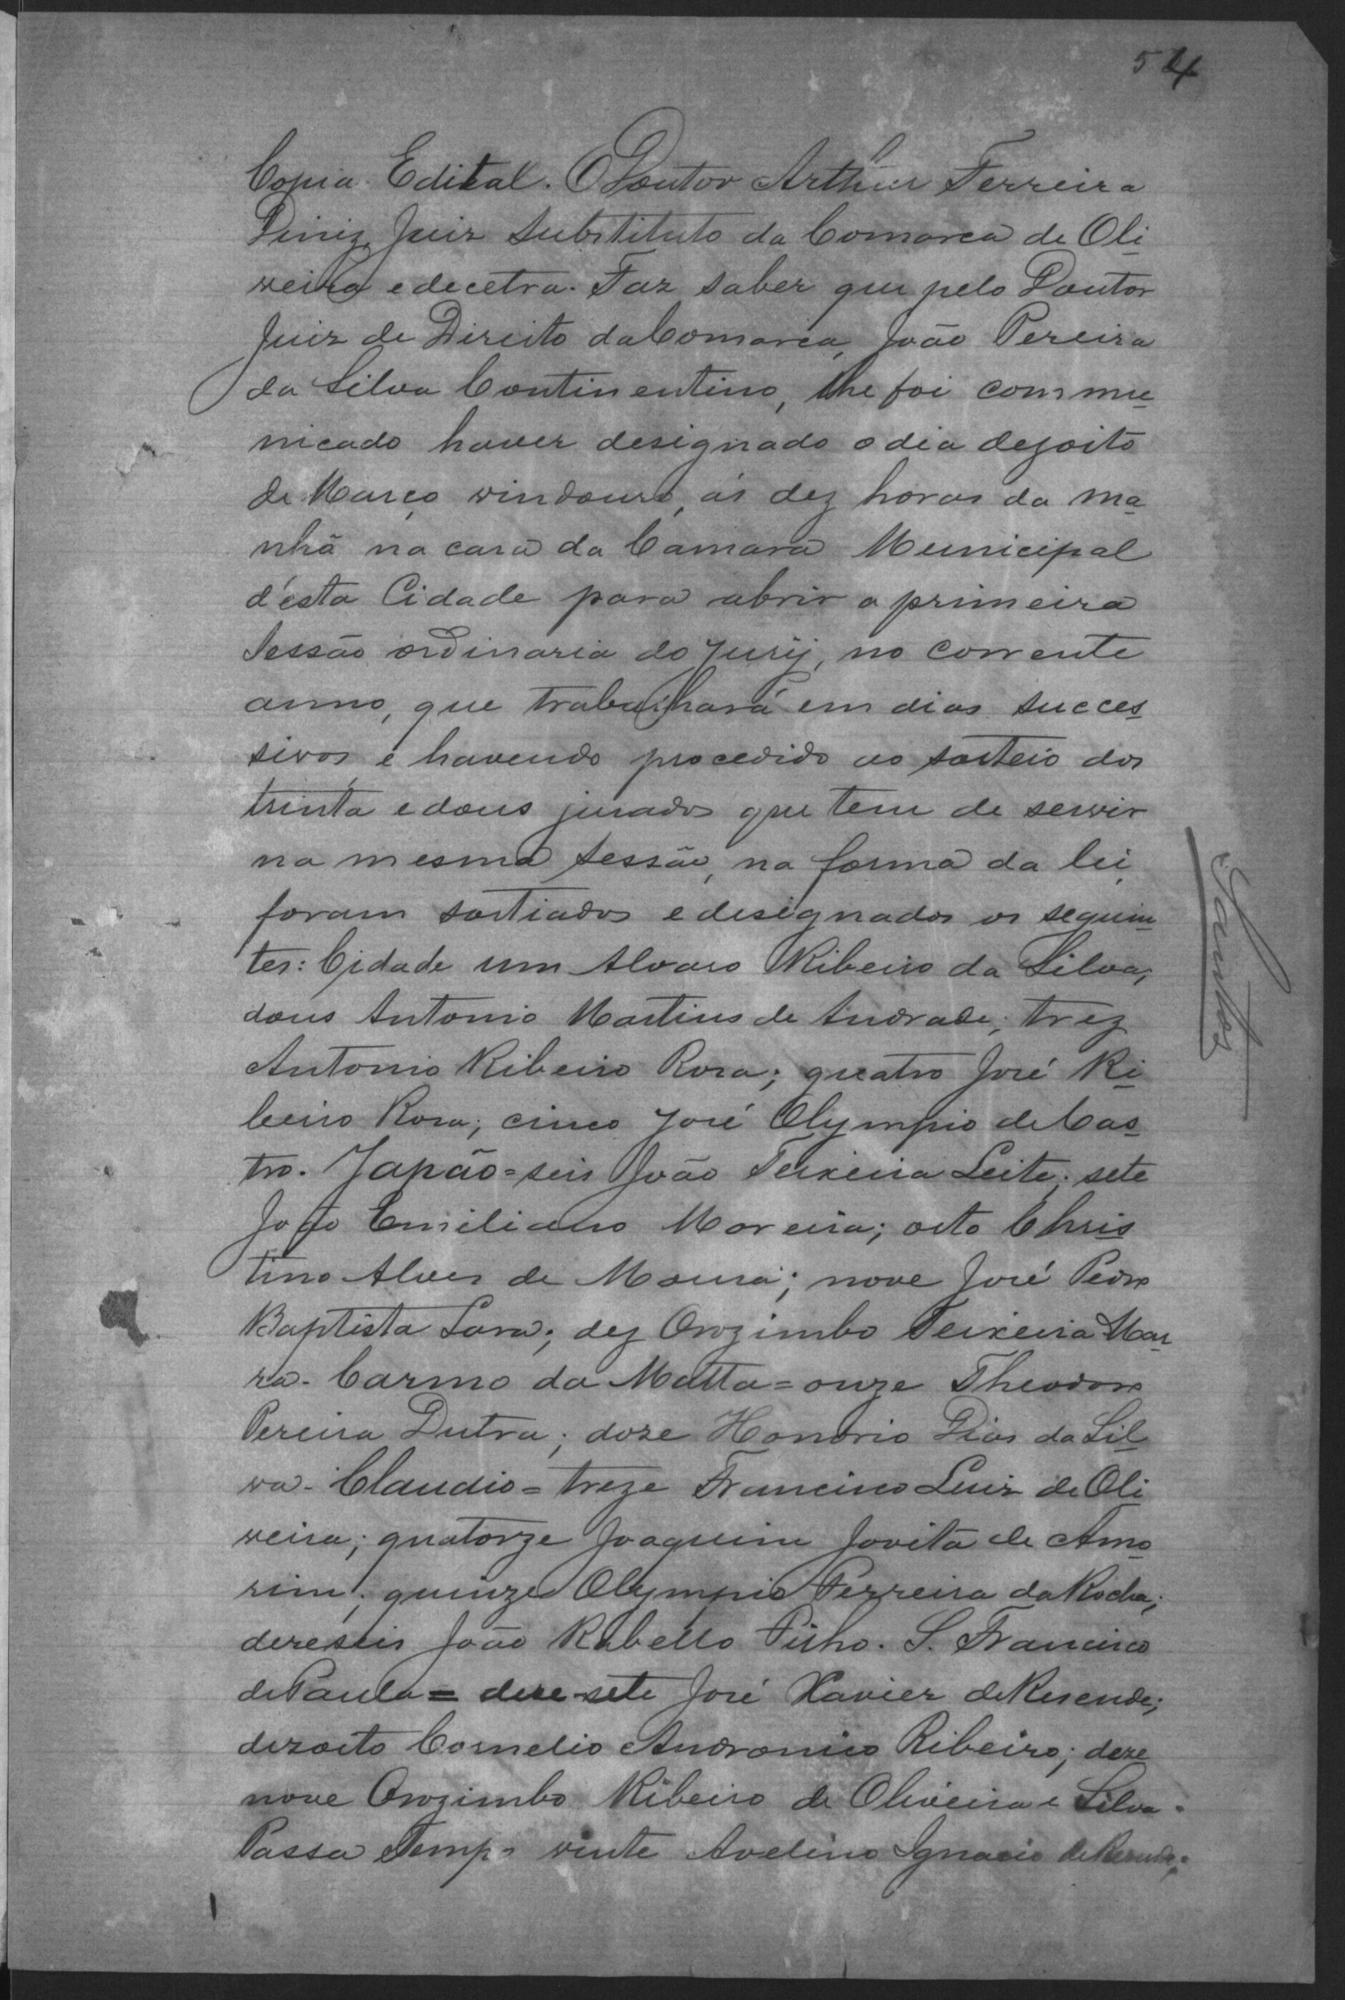 54
Copia. Edital. O Doutor Arthur Ferreira
Diniz Juiz Substituto da Comarca de Oli
veira e decetra. Faz saber que pelo Doutor
Juiz de Direito da Comarca, João Pereira
da Silva Continentino, lhe foi commu
nicado haver designado o dia dezoito
de Março vindouro, ás dez horas da ma
nhã na casa da Camara Municipal
d'esta Cidade para abrir a primeira
Sessão ordinaria do Jury, no corrente
anno, que trabalhará em dias succes
sivos, e havendo procedido ao sorteio dos
trinta e dous jurados que tem de servir
na mesma Sessão, na forma da lei
foram sortiados e designados os seguin
tes: Cidade um Alvaro Ribeiro da Silva;
dous Antonio Martins de Andrade; trez
Antonio Ribeiro Rosa; quatro José Ri
beiro Rosa; cinco José Olympio de Cas
tro. Japão = seis João Teixeira Leite; sete
João Emiliano Moreira; oito Chris
tino Alves de Moura; nove José Pedro
Baptista Lara; dez Orozimbo Teixeira Mar
ra. Carmo da Matta = onze Theodoro
Pereira Dutra; doze Honorio Dias da Sil
va. Claudio = treze Francisco Luiz de Oli
veira; quatorze Joaquim Jovita de Amo
rim; quinze Olympio Ferreira da Rocha;
dezeseis João Rabello Filho. S. Francisco
de Paula = dezesete José Xavier de Resende;
dezoito Cornelio Andronico Ribeiro; deze
nove Orozimbo Ribeiro de Oliveira e Silva.
Passa Tempo vinte Avelino Ignacio de Resende;
Santos